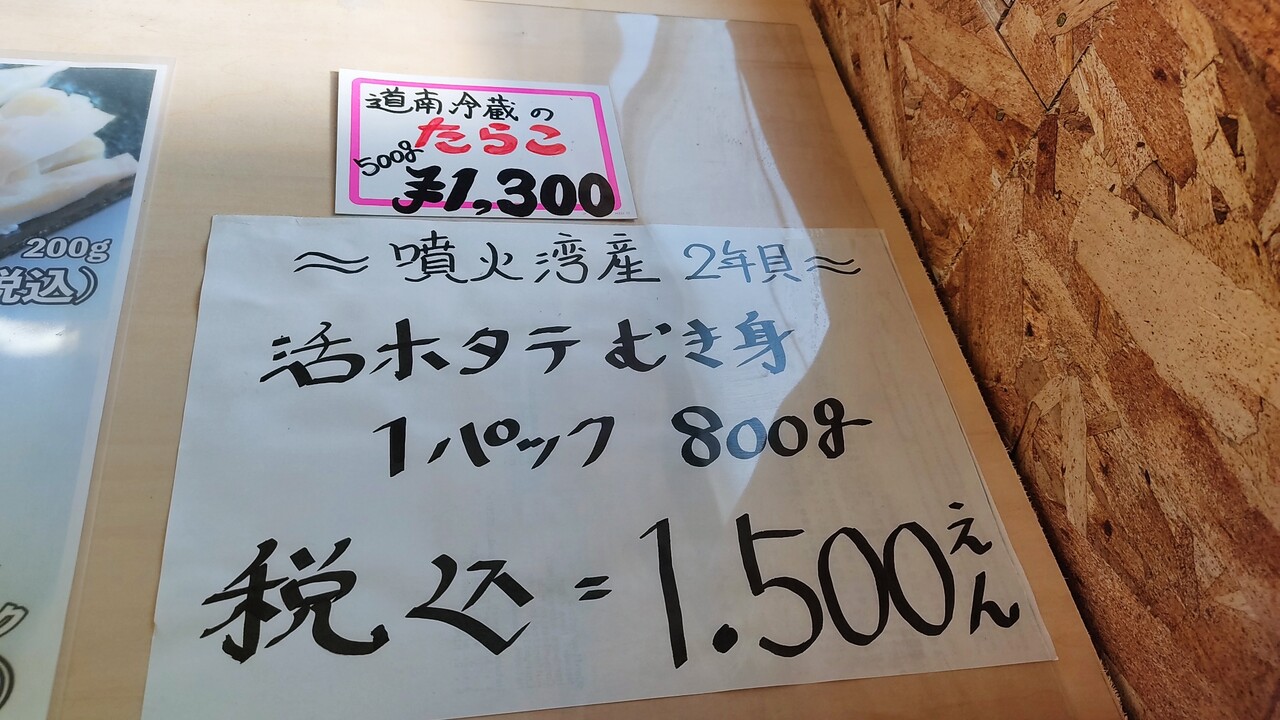 道南冷蔵の
たらこ
500g
¥1,300
≈噴火湾産 2年貝≈
活ホタテむき身
1パック 800g
税込=1.500えん
200g
税込)